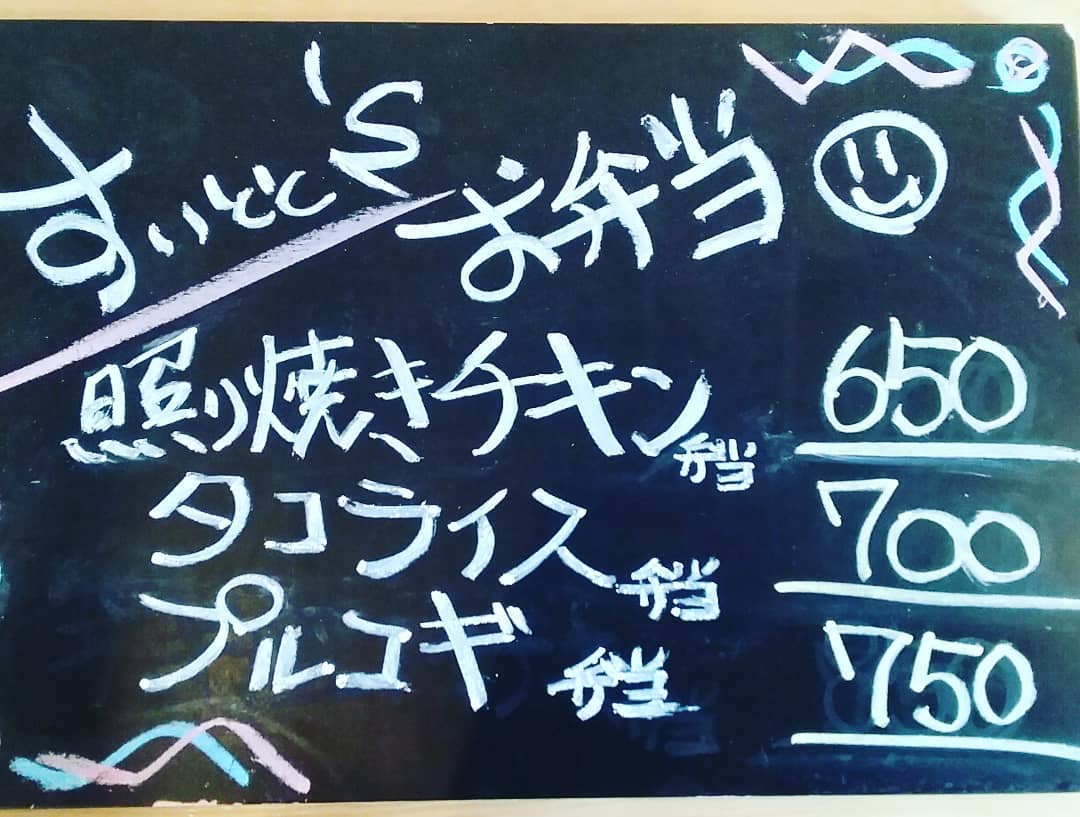 すぃーとと'S お弁当
照り焼きチキン弁当 650
タコライス弁当 700
プルコギ弁当 750